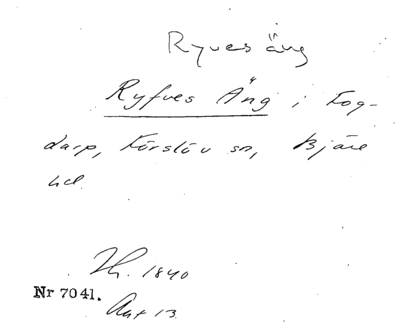 Ryves äng
Ryfves Äng i Fog-
darp, Förslöv sn, Bjäre
hd.
Th. 1840
Nr 7041.
Akt 13.